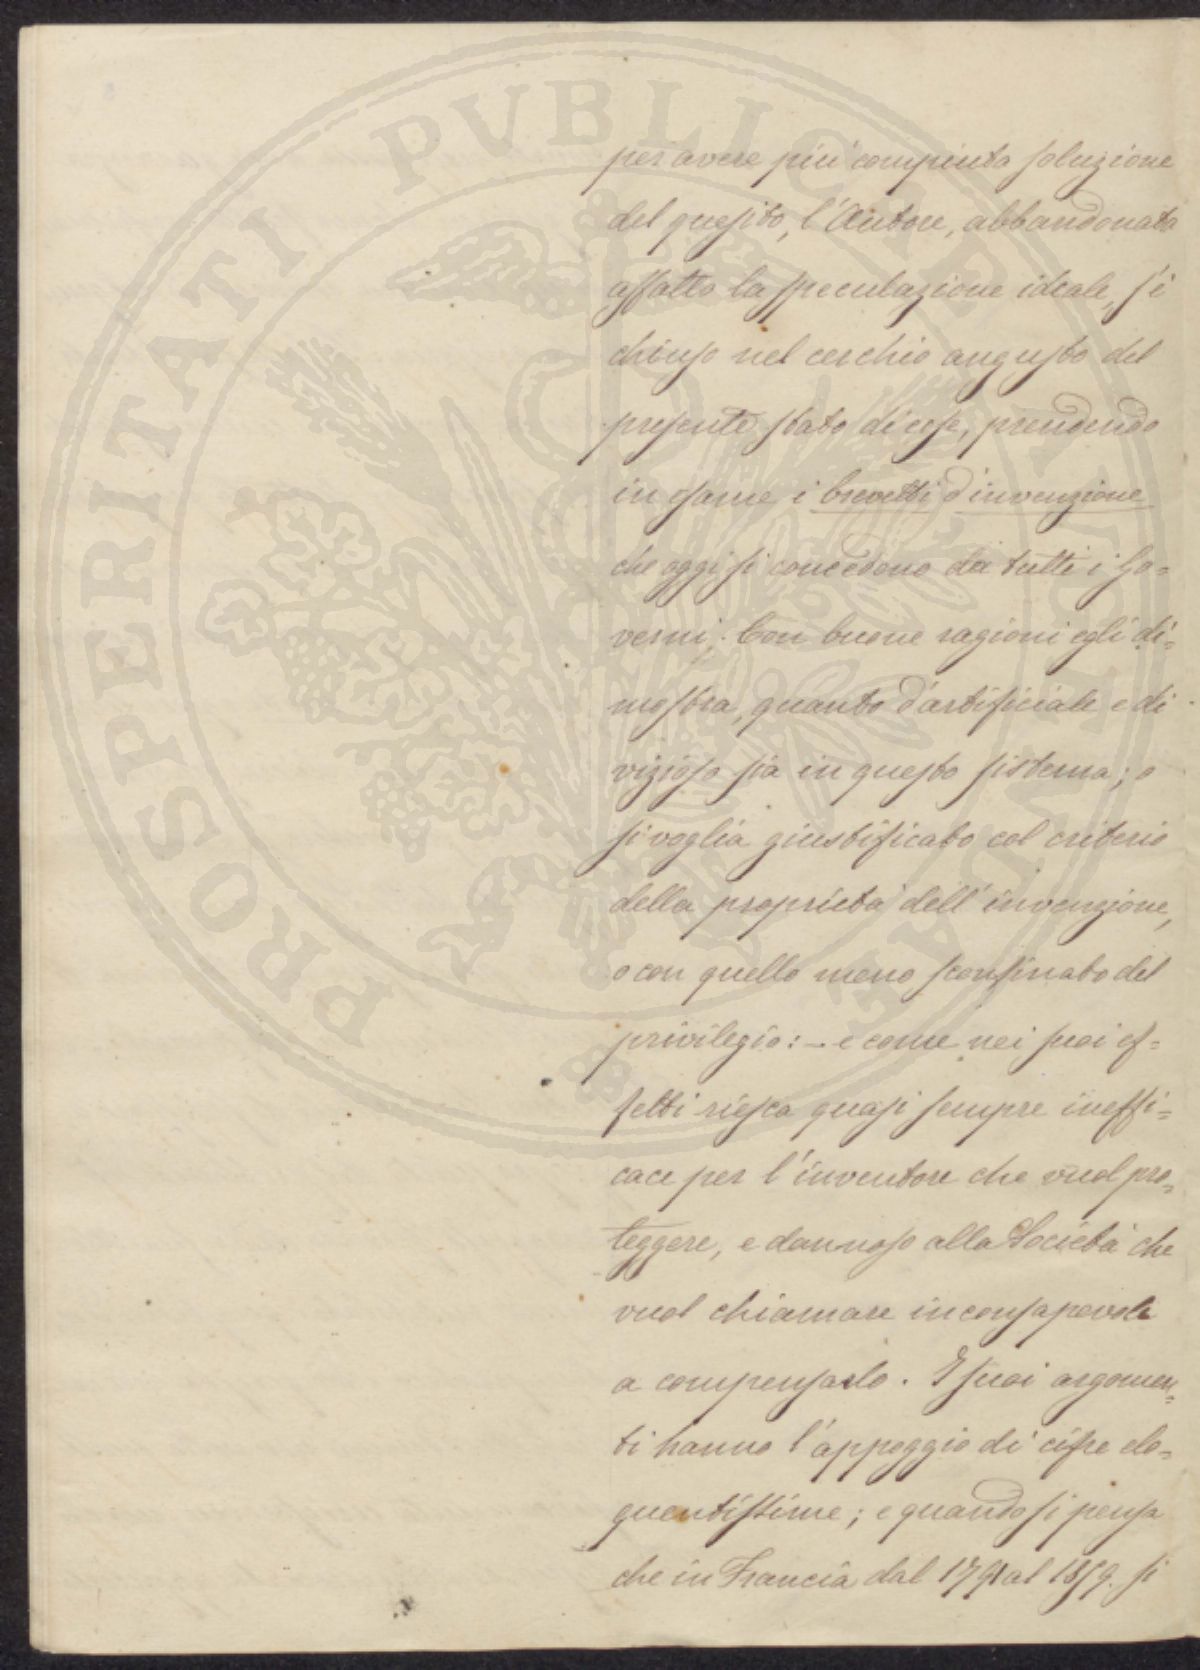 PROSPERITATI PUBLICAE AUGENDAE
per avere più compiuta soluzione
del quesito, l'Autore, abbandonata
affatto la speculazione ideale, si
chiuse nel cerchio angusto del
presente stato di cose, prendendo
in esame i brevetti d'invenzione
che oggi si concedono da tutti i Go=
verni. Con buone ragioni egli di=
mostra, quanto d'artificiale e di
vizioso sia in questo sistema; o
si voglia giustificato col criterio
della proprietà dell'invenzione,
o con quello meno sconfinato del
privilegio: – e come nei suoi ef=
fetti riesca quasi sempre ineffi=
cace per l'inventore che vuol pro=
teggere, e dannoso alla Società che
vuol chiamare inconsapevole
a compensarlo. I suoi argomen=
ti hanno l'appoggio di cifre elo=
quentissime; e quando si pensa
che in Francia dal 1791 al 1859. si